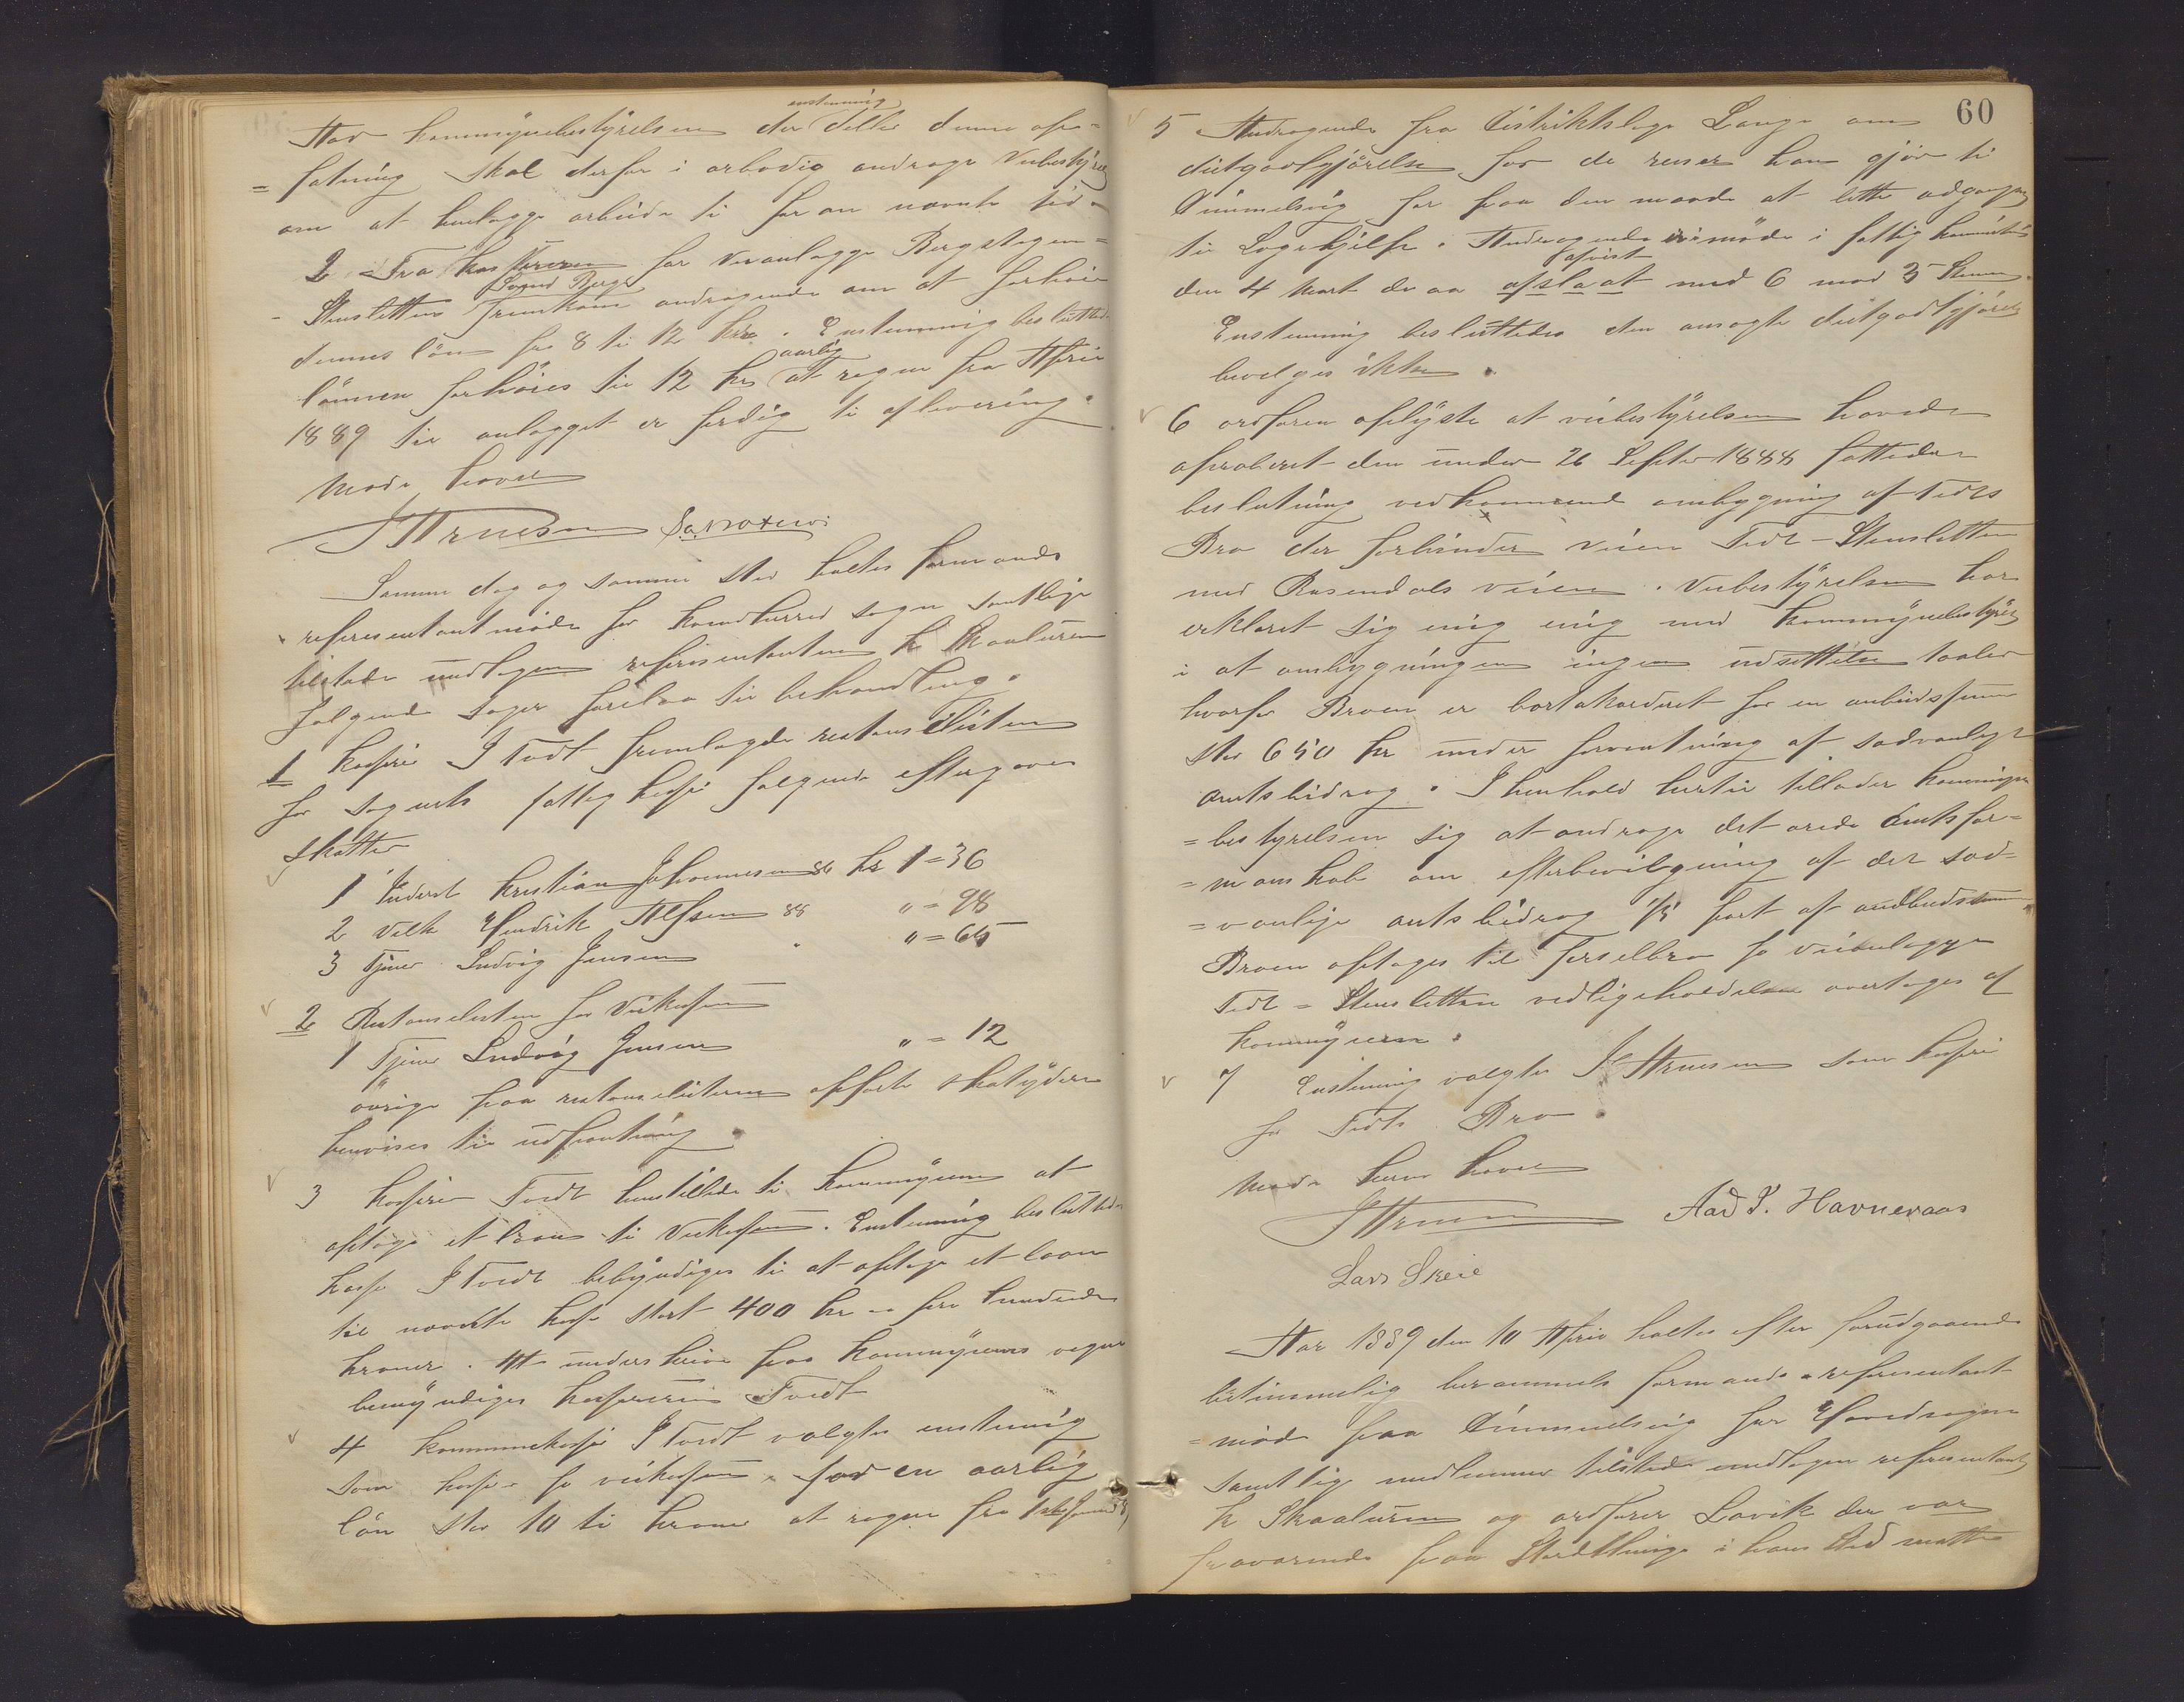 enstemmig
Har kommunebestyrelsen der deller denne op=
=fatning skal derfor i ærbødig andrage Veibestyrels
om at henlægge arbeide til foran nævnte tid.
2 Fra Kassereren for Veianlægge Bergstøgen=
Svend Berge
-Stensletten fremkom andragende om at forhøie
dennes løn fra 8 til 12 kr. Enstemmig besluttedes
aarlig
lønnen forhøies til 12 kr at regne fra April
1889 til anlægget er færdig til aflevering.
Møde hævet
J Arnesen
Samme dag og samme sted holdtes formands
representantmøde for Kvindherred sogn samtlige
tilstede undtagen representanten K Skaaluren
følgende sager forelaa til behandling.
1 Kasserer J Tvedt fremlagde restanselisten
for sognets fattigkasse følgende eftergaves
skatter
1 Inderst Kristian Johannesen 86 kr 1=36
2 Velk Hendrik Alfsen 88 " = 98
3 Tjener Ludvig Jensen " " = 65
2 Restanselisten for Veikassen
1 Tjener Ludvig Jensen " = 12
øvrige paa restanselisterne opførte skatydere
henvises til udpantning.
3 Kasserer Tvedt henstillede til Kommunen at
optage et laan til Veikassen. Enstemmig besluttedes
Kasse J Tvedt bemyndiges til at optage et laan
til nævnte kasse stort 400 kr - fire hundrede
kroner. At underskrive paa Kommunens vegne
bemyndiges kassereren Tvedt
4 Kommunekasse J Tvedt valgtes enstemmig
som kasse- for veikassen for en aarlig
løn stor 10 ti kroner at regne fra
60
5 Andragende fra Distriktslæge Lange om
diætgodtgjørelse for de reiser han gjør til
Dimmelsvig for paa den maade at lette adgangen
til Lægehjelp. Andragende i møde i fattigkommis
afvist
den 4 Marts da aa afslaat med 6 mod 3 Stemmer.
Enstemmig besluttedes den ansøgte diætgodtgjørels
bevilges ikke.
6 ordføren oplyste at veibestyrelsen havde
aproberet den under 26 Septbr 1888 fattede
beslutning vedkommende ombygning af Tvedts
Bro der forbinder veien Tvedt-Stensletten
med Rosendals veien. Veibestyrelsen har
erklæret sig enig enig med kommunebestyrels
i at ombygningen ingen udsettelse taaler
hvorfor Broen er bortakorderet for en anbudssum
stor 650 kr under forventning af sædvanligt
amtsbidrag. I henhold hertil tillader kommune
=bestyrelsen sig at andrage det ærede Amtsfor=
=manskab om efterbevilgning af det sæd=
=vanlige amtsbidrag 1/3 part af anbudssum
Broen optages til færselbro for veianlægget
Tvedt = Stensletten vedligeholdelsen overtages af
kommunen.
7 Enstemmig valgtes J Arnesen som kasser
for Tvedts Bro.
Møde herved hævet
J Arnesen Aad T. Havneraas
Lars Skeie
Aar 1889 den 10 April holdtes efter forudgaaende
betimmelig berammels formands- representant
=møde paa Dimmelsvig for Hovedsognet
samtlige medlemmer tilstede undtagen representant
K Skaaluren og ordfører Lavik der var
fraværende paa Stortthinget i hans sted mødte